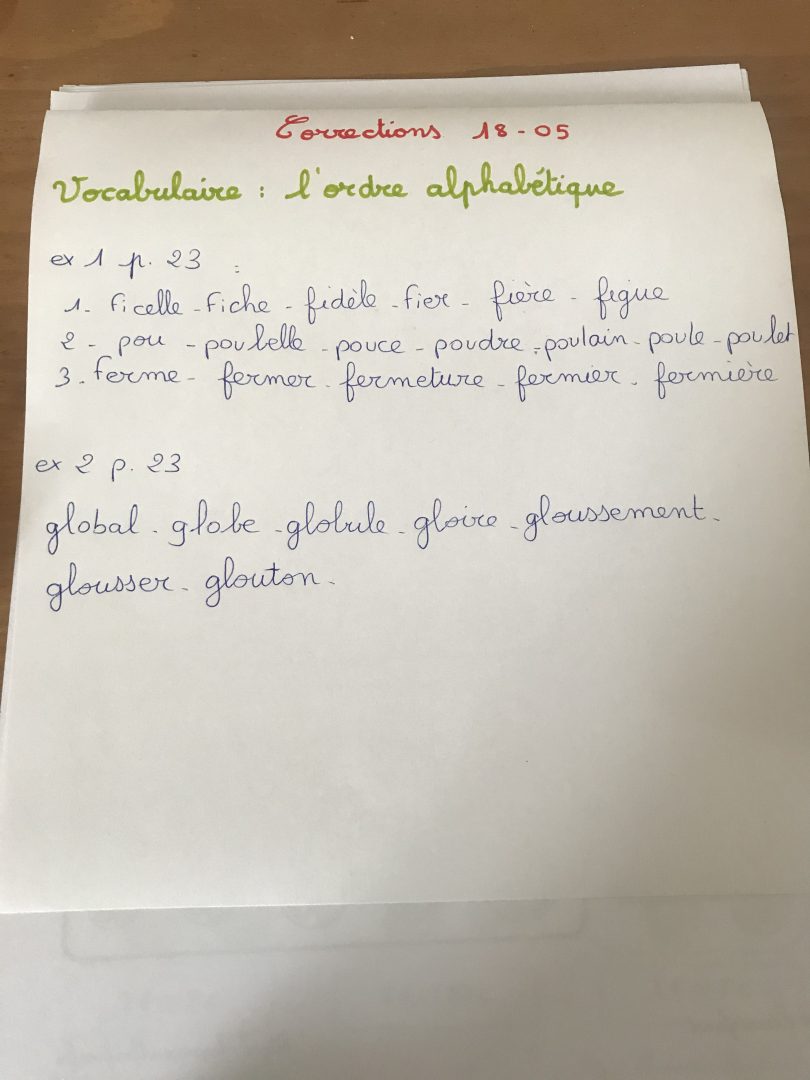 Corrections 18-05
Vocabulaire : l'ordre alphabétique
ex 1 p. 23 :
1- ficelle - fiche - fidèle - fier - fière - figue
2 - pou - poubelle - pouce - poudre - poulain - poule - poulet
3. ferme - fermer - fermeture - fermier - fermière
ex 2 p. 23
global - globe - globule - gloire - gloussement -
glousser - glouton -